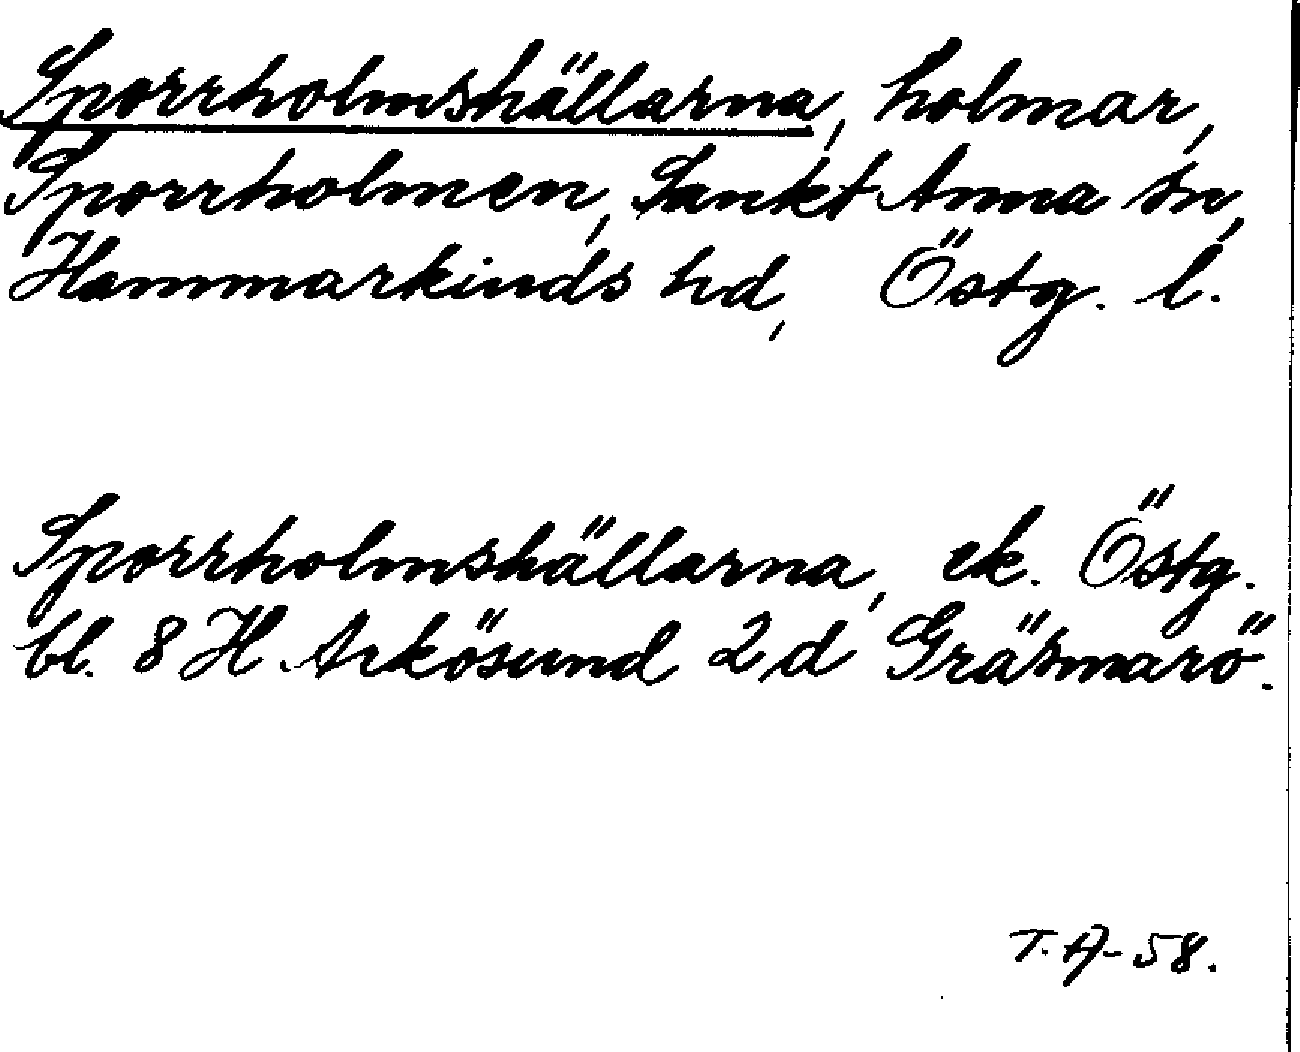 Sporrholmshällarna, holmar,
Sporrholmen, Sankt Anna sn,
Hammarkinds hd, Östg. l.
Sporrholmshällarna, ek. Östg.
bl. 8 H Arkösund 2 d Gräsmarö.
T. A-58.